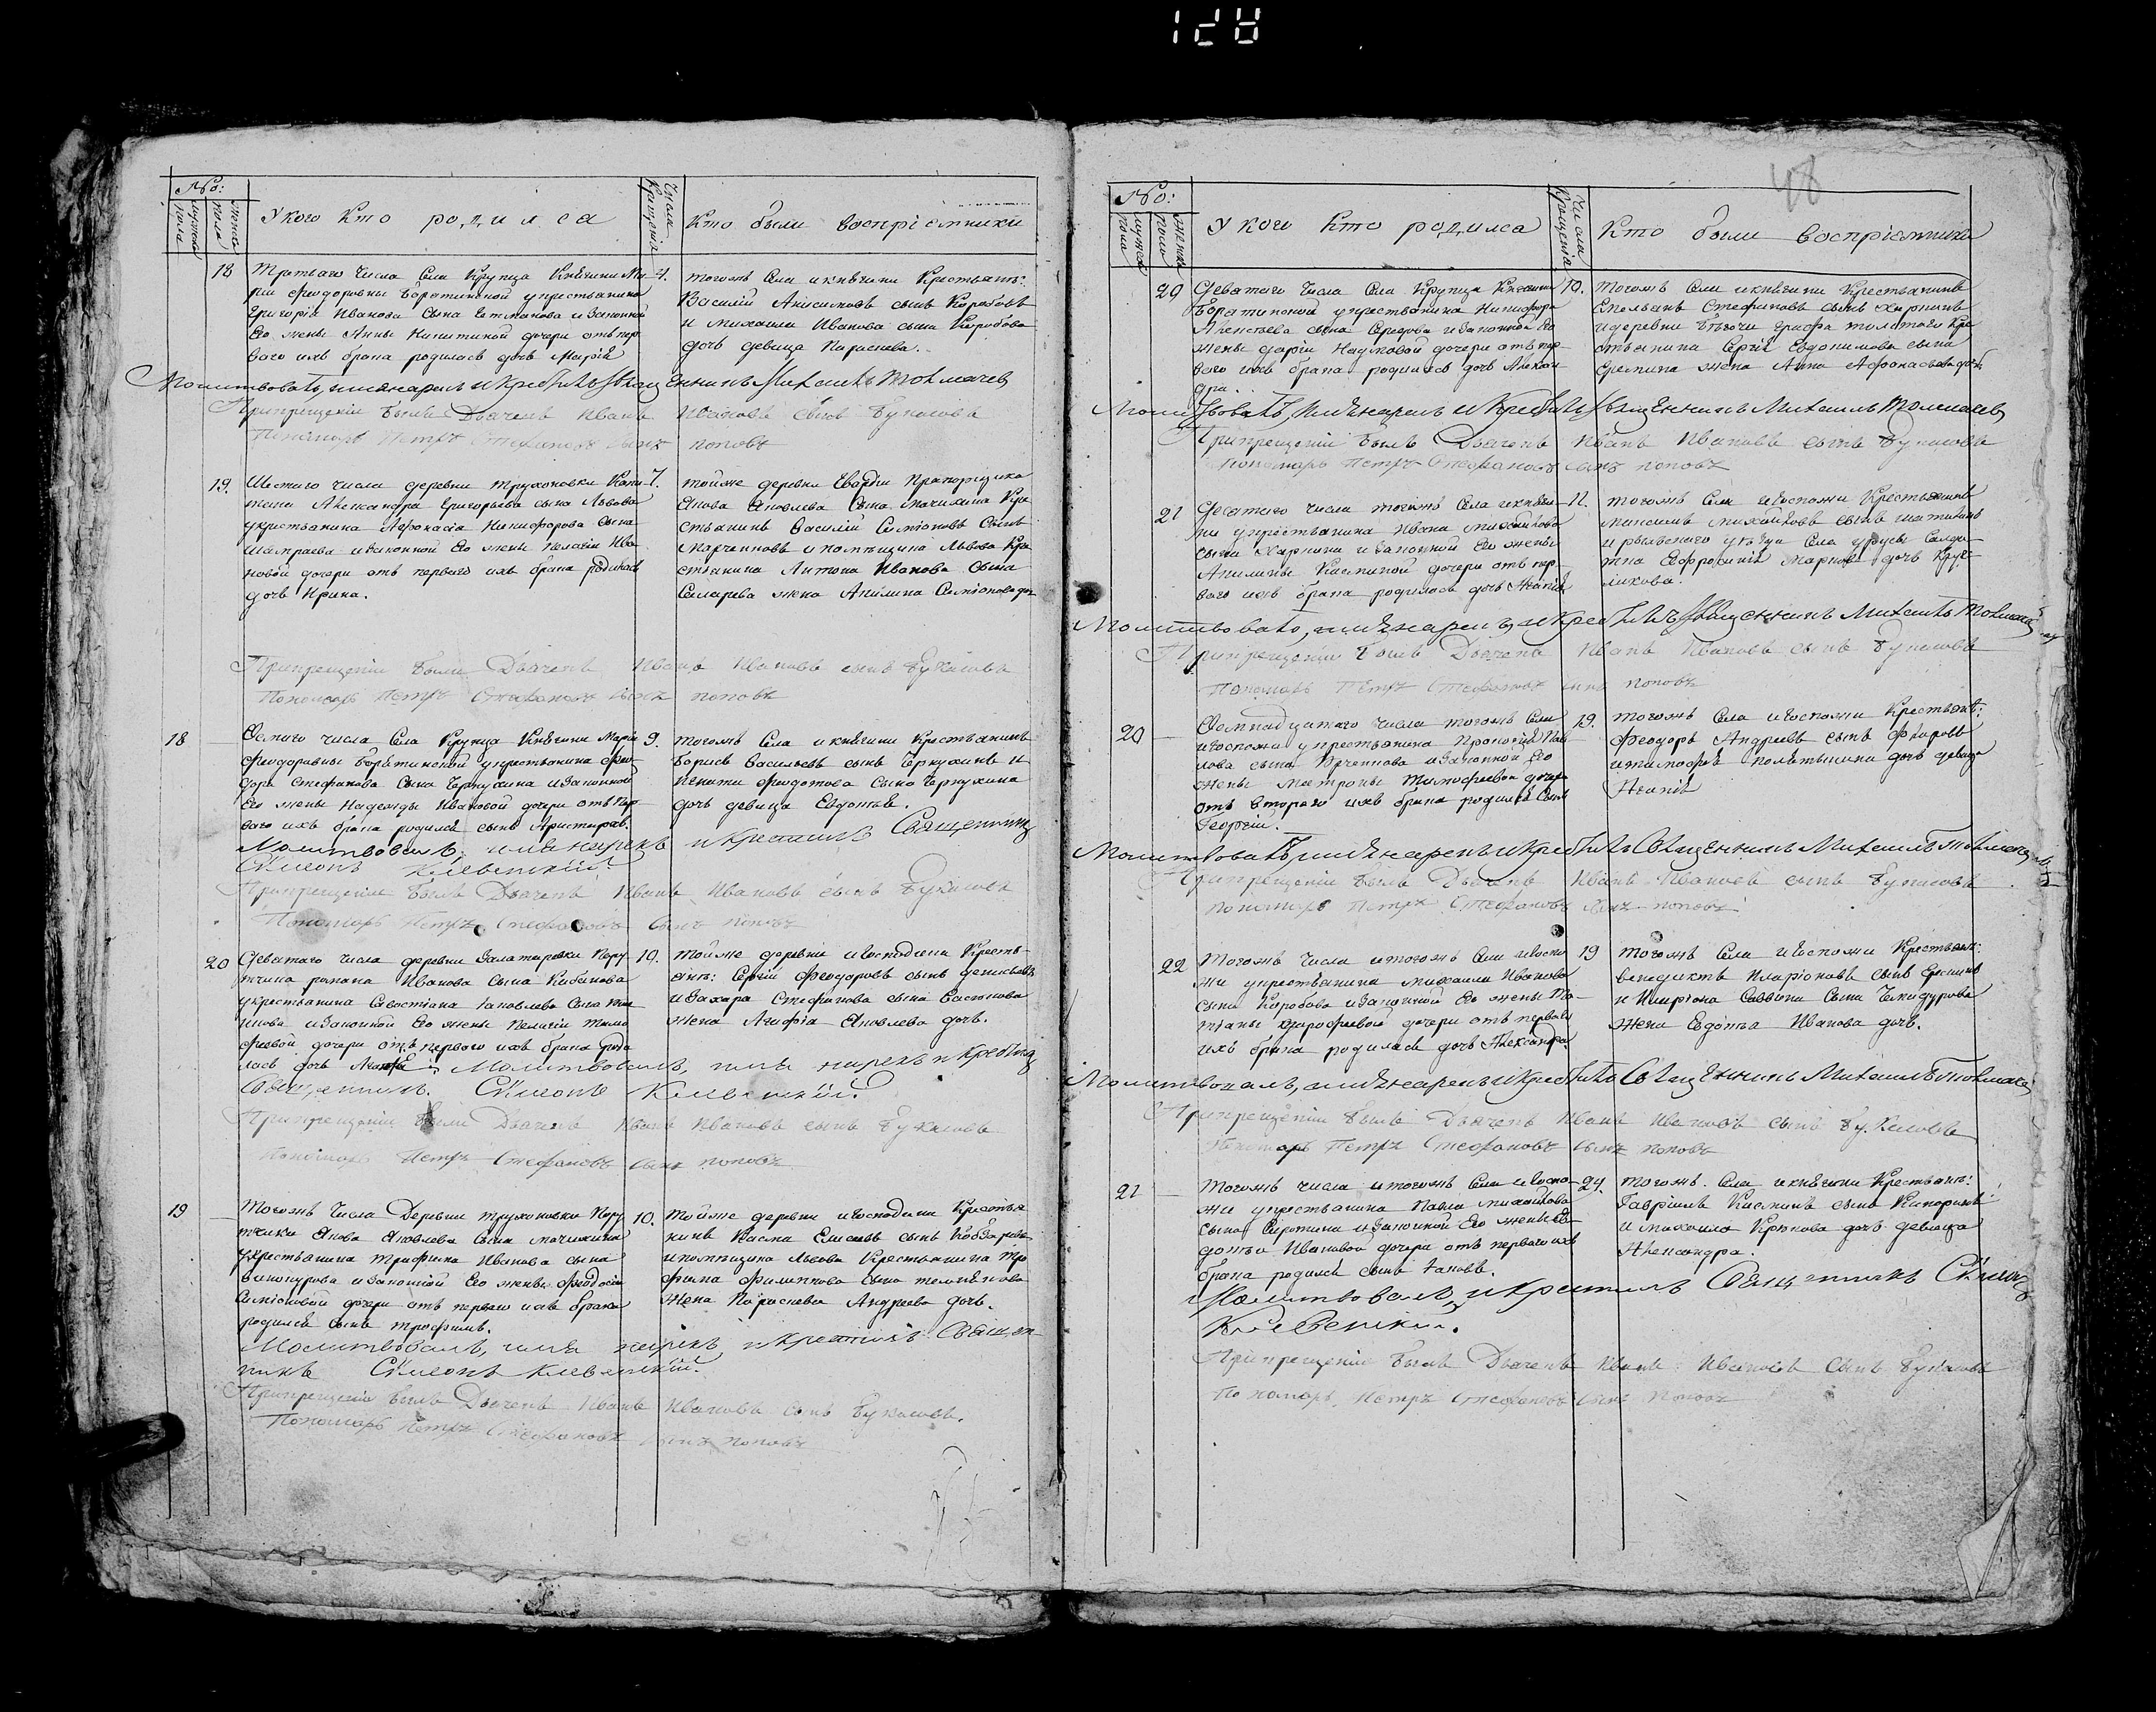 128
№:
мужеска пола
женска пола
У кого кто родился
Числа крещенія
Кто были воспріемники
18
Третьаго числа села Крупца Княгини Ма-
ріи Феодоровны Борятинской у крестьянина
Григорія Иванова сына и законной
Его жены Анны Никитиной дочери отъ пер-
ваго ихъ брака родилась дочь Марія
4.
тогожъ села и княгини крестьян:
Василій Анисимовъ сынъ Коробовъ
и михаила Иванова сына Коробова
дочь девица Параскева.
Молитвовалъ, имя нарекъ и крестилъ священникъ Михаилъ Толмачев
При крещеніи былъ Дьячекъ Иванъ Ивановъ сынъ Букасовъ
Пономарь Петръ Стефановъ сынъ поповъ
19.
Шестаго числа деревни Трухоновки Капи-
тана Александра Григорьева сына Львова
у крестьянина Афонасіа Никифорова сына
и законной Его жены Пелагіи Ива
новой дочери отъ перваго ихъ брака родилась
дочь Ирина.
7.
тойже деревни Гвардіи Прапорщика
Якова Яковлева сына мачихина Кре
стьянинъ Василій Симіоновъ сынъ
Марченковъ и помещика Львова Кре
стьянина Антона Иванова сына
жена Акилина Симіонова доч
При крещеніи были Дьячекъ Иванъ Ивановъ сынъ Букасовъ
Пономарь Петръ Стефановъ сынъ поповъ
18
Осмаго числа Села Крупца Княгини Маріи
Феодоровны Борятинской у крестьянина Фео-
дора Стефанова сына Черкухина и законной
Его жены Надежды Ивановой дочери отъ пер-
ваго ихъ брака родился сынъ Аристархъ.
9.
тогожъ Села и княгини крестьянинъ
Борисъ Васильевъ сынъ Черкухинъ и
Игнати Федотова сына Черкухина
дочь девица Евдокія.
Молитвовалъ, имя нарекъ и крестилъ Священникъ
Симеонъ Клевенскій.
При крещеніи былъ Дьячекъ Иванъ Ивановъ сынъ Букасовъ
Пономарь Петръ Стефановъ сынъ поповъ
20
Деватаго числа деревни Пору
тчика романа Иванова сына Кабанова
у крестьянина Савостіана Iаковлева сына
и законной Его жены Пелагіи Тимо
феевой дочери отъ перваго ихъ брака роди
лась дочь
10.
тойже деревни и господина Кресть-
янъ: Сергій Феодоровъ сынъ
и Захара Стефанова сына
жена Агафіа Яковлева дочь.
Молитвовалъ, имя нарекъ и крестилъ
Священникъ Симеонъ Клевенскій.
При крещеніи были Дьячекъ Иванъ Ивановъ сынъ Букасовъ
Пономарь Петръ Стефановъ сынъ поповъ
19
Тогожъ числа Деревни Трухоновки Пору
тчика Якова Яковлева сына мачихина
у крестьянина Трофима Иванова сына
винокурова и законной Его жены Феодосіи
Симіоновой дочери отъ перваго ихъ брака
родился сынъ Трофимъ.
10.
тойже деревни и господина Крестья
нинъ Касма сынъ
и помещика Львова Крестьянина Тро
фима Филиппова сына
жена Параскева Андреева дочь.
Молитвовалъ, имя нарекъ и крестилъ Священ-
никъ Симеонъ Клевенскій.
При крещеніи былъ Дьячекъ Иванъ Ивановъ сынъ Букасовъ.
Пономарь Петръ Стефановъ сынъ поповъ
48
№:
мужеска пола
женска пола
У кого кто родился
Числа крещенія
Кто были воспріемники
20
Деватаго числа Села Крупца Княгини
Борятинской у крестьянина Никифора
Алексеева сына Середова и законной Его
жены Даріи дочери отъ пер-
ваго ихъ брака родилась дочь Алексан
дра.
10.
тогожъ Села и княгини Крестьянинъ
Емельянъ Стефановъ сынъ Харкинъ
и деревни графа толстаго Кре
стьянина Сергія Евдокимова сына
жена Анна Афонасьева доч
Молитвовалъ, имя нарекъ и крестилъ священникъ Михаилъ Толмачев
При крещеніи былъ Дьячекъ Иванъ Ивановъ сынъ Букасовъ
Пономарь Петръ Стефановъ сынъ поповъ
21
Десатаго числа тогожъ Села и княги-
ни у крестьянина Ивана михайлова
сына Харкина и законной Его жены
Акилины Касминой дочери отъ пер-
ваго ихъ брака родилась дочь Агапія
11.
тогожъ Села и Госпожи Крестьянинъ
Максимъ михайловъ сынъ
и рыльскаго уезда Села
тка Евфросинія Маркова дочь Круг-
ликова.
Молитвовалъ, имя нарекъ и крестилъ священникъ Михаилъ Толмачев
При крещеніи былъ Дьячекъ Иванъ Ивановъ сынъ Букасовъ
Пономарь Петръ Стефановъ сынъ поповъ
20
Осмнадцатаго числа тогожъ Села
и госпожи у крестьянина Прокофія Пав
лова сына и законной Его
жены Матроны Тимофеевой дочери
отъ втораго ихъ брака родился сынъ
Георгій.
19.
тогожъ Села и Госпожи Крестьян:
Феодоръ Андреевъ сынъ
и тимофея дочь девица
Агапія
Молитвовалъ, имя нарекъ и крестилъ Священникъ Михаилъ Толмачев
При крещеніи былъ Дьячекъ Иванъ Ивановъ сынъ Букасовъ
Пономарь Петръ Стефановъ сынъ поповъ
22
Тогожъ числа и тогожъ Села и госпо
жи у крестьянина михаила Иванова
сына Коробова и законной Его жены Та-
тіаны дочери отъ перваго
ихъ брака родилась дочь Александра.
19
тогожъ Села и Госпожи Крестьян:
венедиктъ Иларіоновъ сынъ
и Илиріона Саввина сына
жена Евдокіа Иванова дочь.
Молитвовалъ, имя нарекъ и крестилъ Священникъ Михаилъ Толмачев
При крещеніи былъ Дьячекъ Иванъ Ивановъ сынъ Букасовъ
Пономарь Петръ Стефановъ сынъ поповъ
21
Тогожъ числа и тогожъ Села и госпо-
жи у крестьянина Павла михайлова
сына Сиротина и законной Его жены Ев-
докіи Ивановой дочери отъ перваго ихъ
брака родился сынъ Iаковъ.
24.
тогожъ Села и княгини Крестьян:
Гавріилъ Касминъ сынъ
и михаила Крюкова дочь девица
Александра.
Молитвовалъ и крестилъ Священникъ Симеонъ
Клевенскій.
При крещеніи былъ Дьячекъ Иванъ Ивановъ сынъ Букасовъ
Пономарь Петръ Стефановъ сынъ поповъ